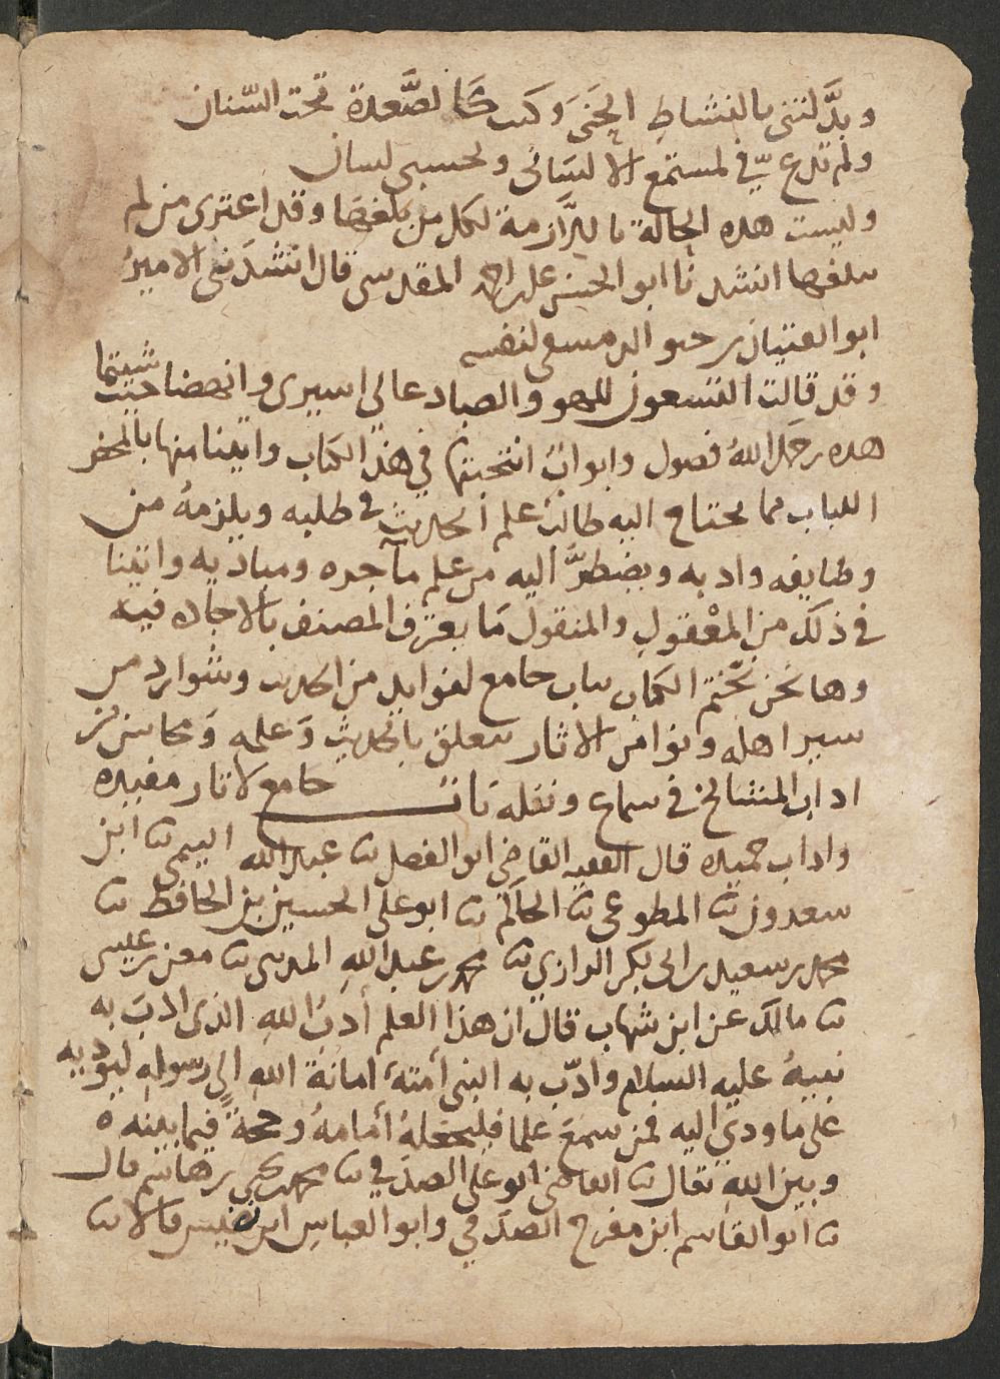 وبدَّلتني بالنشاط الحَنَى وكنت كالصَّعدة تحت السّنان
ولم تدع فيّ لمستمع الا لسانى ولحسبى لسان
وليست هذه الحالة باللازمة لكل من بلغها وقد اعترى من لم
يبلغها انشدنا ابو الحسن على بن احمد المقدسى قال انشدَنى الاميرُ
ابو الفتيان بن حيو الدمسقى لنفسه
وقد قالت التسعون للهو والصبا دعالي اسيرى وانهضا حيث شيتما
هذه رحمك اللهُ فصول وابوابٌ انتخبتها في هذا الكتاب واتينا منها بالمخض
اللباب مما يحتاج اليه طالبُ علم الحديث في طلبه ويلزمهُ من
وظايفه وادبه ويضطرَّ اليه من علم مآخذه ومباديه واتينا
في ذلك من المعْقول والمنقول مَا يعترف المصنف بالاجاده فيه
وها نحن نختم الكتاب بباب جامع لفوايد من الحديث وشوارد من
سير اهله ونوادر من الاثار تتعلق بالحديث وَعلمه وَمحاسن من
اداب المشائخ في سماع ونقله باب جامع لاثار مفيده
واداب حميده قال الفقيه القاضي ابو الفضل ثنا عبد الله التيمى ثنا ابن
سعدون ثنا المطوعى ثنا الحاكم ثنا ابو على الحسين بن الحافظ ثنا
محمد بن سعيد بن ابى بكر الرازي ثنا محمد بن عبد الله المدينى ثنا معن بن عيسى
ثنا مالك عن ابن شهاب قال ان هذا العلم أدبُ اللهِ الذى ادبَ به
نبيهُ عليه السلام وادّب به النبى أمتهُ أمانة اللهِ الى رسوله ليؤديه
على ما ودي اليه فمن سمعَ علما فليجعلهُ أمامهُ وحجةً فيما بينه ٥
وبين اللهِ تعالى ثنا القاضى ابو على الصدَفي ثنا محمد بن يحيى بن هاشم قال
ثنا ابو القاسم ابن مفرح الصدَفي وابو العباس ابن نفيس قالا ثنا